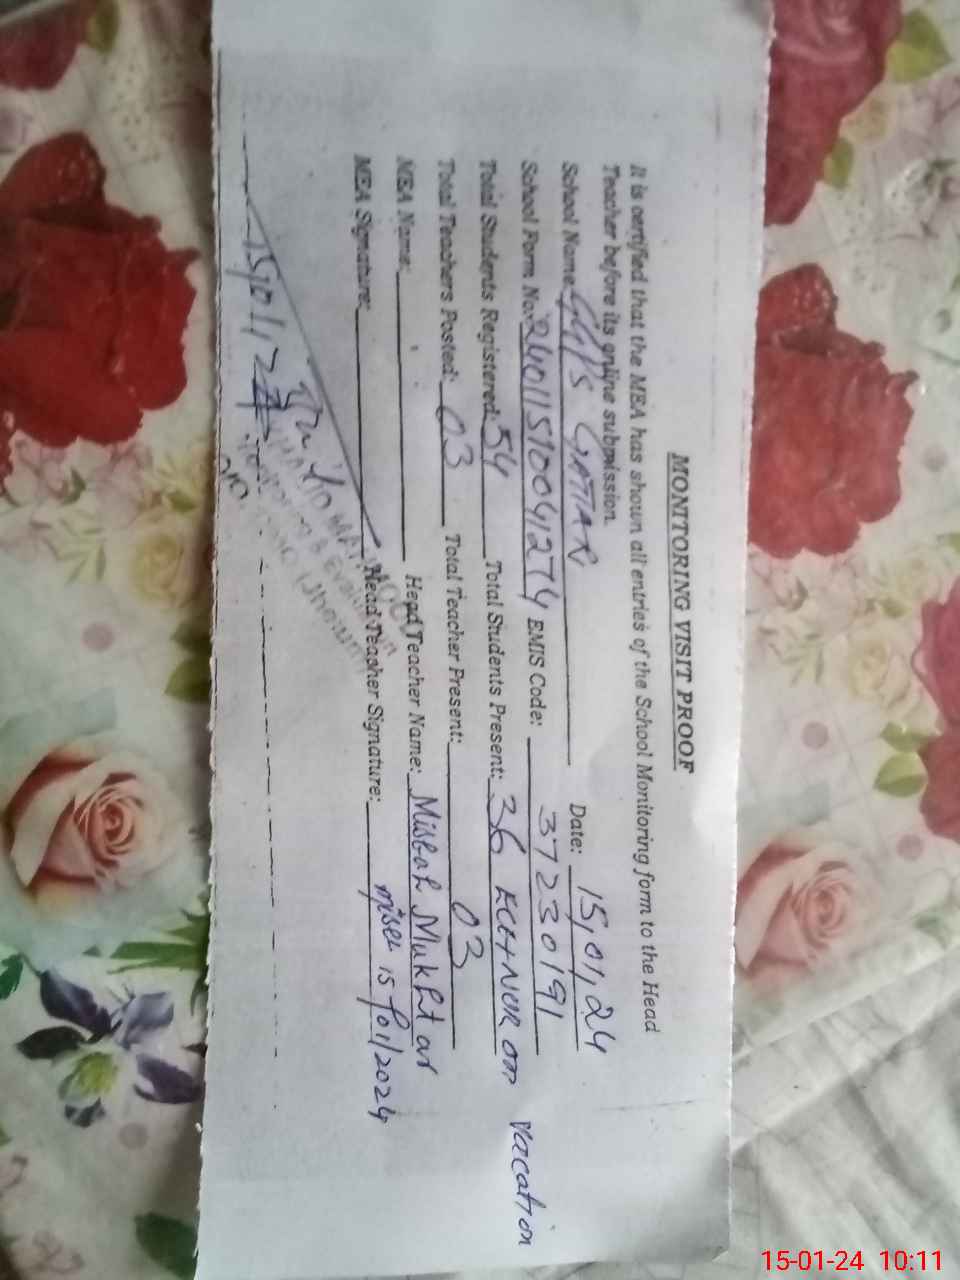 MONITORING VISIT PROOF
It is certified that the MEA has shown all entries of the School Monitoring form to the Head
Teacher before its online submission.
School Name: GGPS GATTAR Date: 15,01,24
School Form No: 24011510041274 EMIS Code: 37230191
Total Students Registered: 54 Total Students Present: 36 ECE+NUR on vacation
Total Teachers Posted: 03 Total Teacher Present: 03
MEA Name: Head Teacher Name: Misbah Mukhtar
MEA Signature: Head Teacher Signature: 15/01/2024
Monitoring & Evaluation
15-01-24 10:11